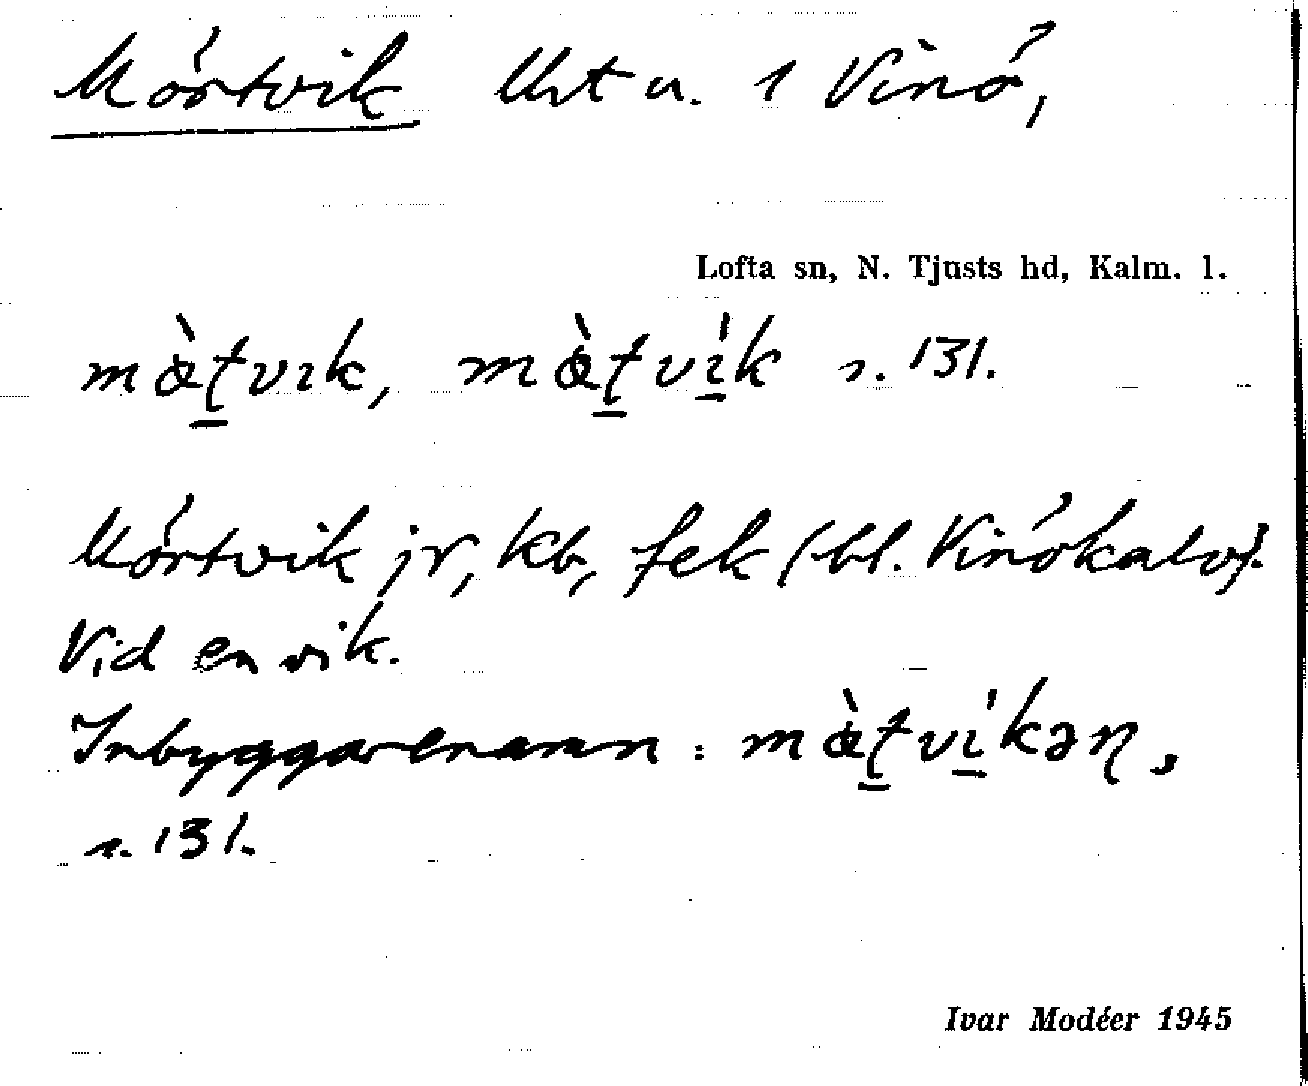 Mörtvik Urt u. 1 Vinö,
Lofta sn, N. Tjusts hd, Kalm. l.
mὰ̀ṯvık, mὰ̀ṯvı̱̍k s. 131.
Mörtvik jr, kb, fek (bl. Vinökalv).
Vid en vik.
Inbyggarenamn: mὰ̀ṯvı̱̍kəɳ,
s. 131.
Ivar Modéer 1945